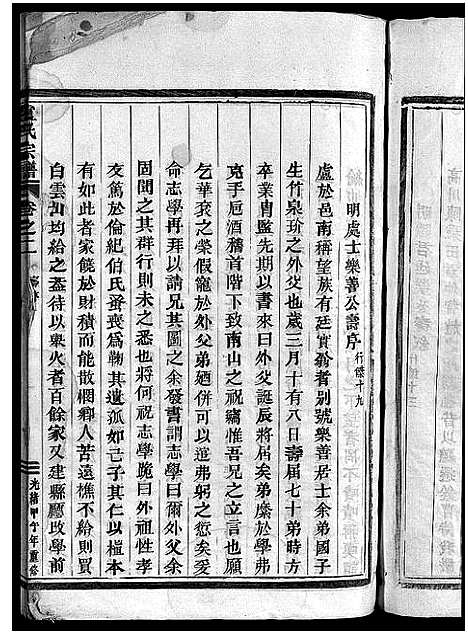 明處士樂善公壽序 行傑十九
盧於邑南稱望族有廷實翁者别號樂善居士余弟國子
生竹泉玠之外父也歲三月十有八日壽屆七十弟時方
卒業胄監先期以書來曰外父誕辰將屆矣弟縻於學弗
克手卮酒稽首階下致南山之祝竊惟吾兄之言也願
乞華衮之榮假寵於外父弟廼併可逭弗躬之愆矣爰
命志學再拜以請兄其圖之余發書謂志學曰爾外父余
固聞之其群行則未之悉也將何祝志學跪曰外祖性孝
友篤於倫紀伯氏蚤喪爲鞠其遺孤如己子其仁以植本
有如此者家饒於財積而能散梱鄉人苦遠樵不給則買
白雲山均給之盃待以東火者百餘家又建縣廳改學前
盧氏宗譜
卷之一
光緒甲午年重修